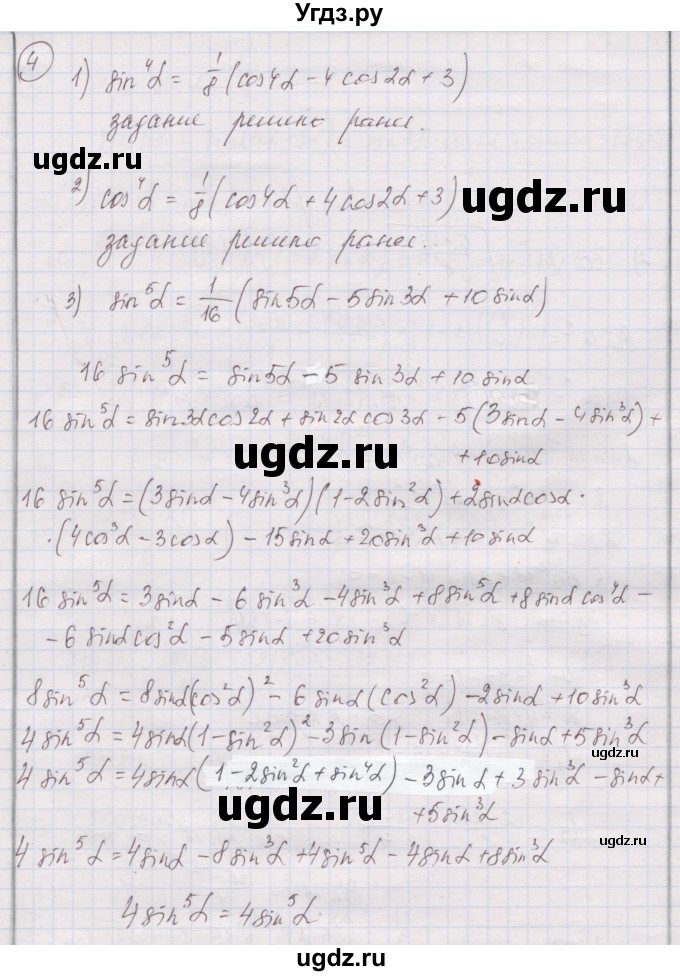 Угдз.ру
4
1) sin⁴α = 1/8 (cos4α − 4cos2α + 3)
задание решено ранее.
ugdz.ru
ugdz.ru
2) cos⁴α = 1/8 (cos4α + 4cos2α + 3)
задание решено ранее.
3) sin⁵α = 1/16 (sin5α − 5sin3α + 10sinα)
16 sin⁵α = sin5α − 5 sin3α + 10 sinα
16 sin⁵α = sin3αcos2α + sin2α cos3α − 5(3sinα − 4sin³α) +
+ 10sinα
ugdz.ru
16 sin⁵α = (3sinα − 4sin³α)(1 − 2sin²α) + 2sinαcosα ·
· (4cos³α − 3cosα) − 15sinα + 20sin³α + 10sinα
16 sin⁵α = 3sinα − 6sin³α − 4sin³α + 8sin⁵α + 8sinαcos⁴α −
− 6sinαcos²α − 5sinα + 20sin³α
ugdz.ru
8sin⁵α = 8sinα(cos²α)² − 6sinα(cos²α) − 2sinα + 10sin³α
4sin⁵α = 4sinα(1 − sin²α)² − 3sin(1 − sin²α) − sinα + 5sin³α
4sin⁵α = 4sinα(1 − 2sin²α + sin⁴α) − 3sinα + 3sin³α − sinα +
+ 5sin³α
ugdz.ru
ugdz.ru
4sin⁵α = 4sinα − 8sin³α + 4sin⁵α − 4sinα + 8sin³α
4sin⁵α = 4sin⁵α
ugdz.ru